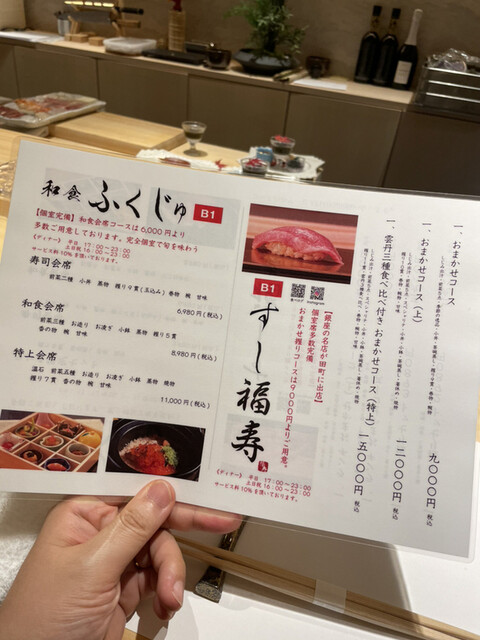 和食 ふくじゅ B1
【個室完備】和食会席コースは6,000円より
多数ご用意しております。完全個室で旬を味わう
(ディナー) 平日 17:00〜23:00
土日祝 16:00〜23:00
サービス料10%を頂いております。
寿司会席
前菜二種 小丼 蒸物 握り8貫(玉込み) 巻物 椀 甘味
6,980円(税込)
和食会席
前菜三種 お造り お凌ぎ 小鉢 蒸物 握り5貫
香の物 椀 甘味
8,980円(税込)
特上会席
温石 前菜五種 お造り お凌ぎ 小鉢 蒸物 焼物
握り7貫 香の物 椀 甘味
11,000円(税込)
B1
食べログ Instagram
すし福寿
【銀座の名店が田町に出店】
個室席多数完備
おまかせ握りコースは9000円よりご用意。
(ディナー) 平日 17:00〜23:00
土日祝 16:00〜23:00
サービス料10%を頂いております。
一、おまかせコース
九〇〇〇円 税込
一、おまかせコース(上)
一二〇〇〇円 税込
一、雲丹三種食べ比べ付き おまかせコース(特上)
一五〇〇〇円 税込